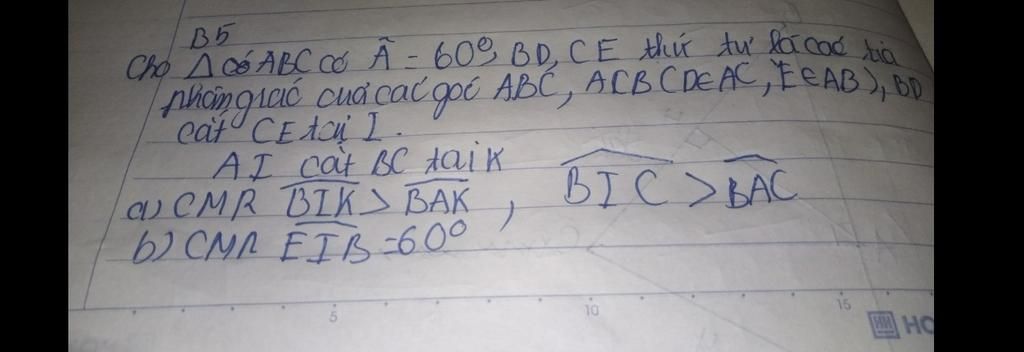 B5
Cho Δ có ABC có Â = 60⁰, BD, CE thứ tự là các tia
phân giác của các góc ABC, ACB (D∈AC, E∈AB), BD
cắt CE tại I.
AI cắt BC tại K
a) CMR BIK > BAK , BIC > BAC
b) CMR EIB = 60⁰
5 10 15
HO